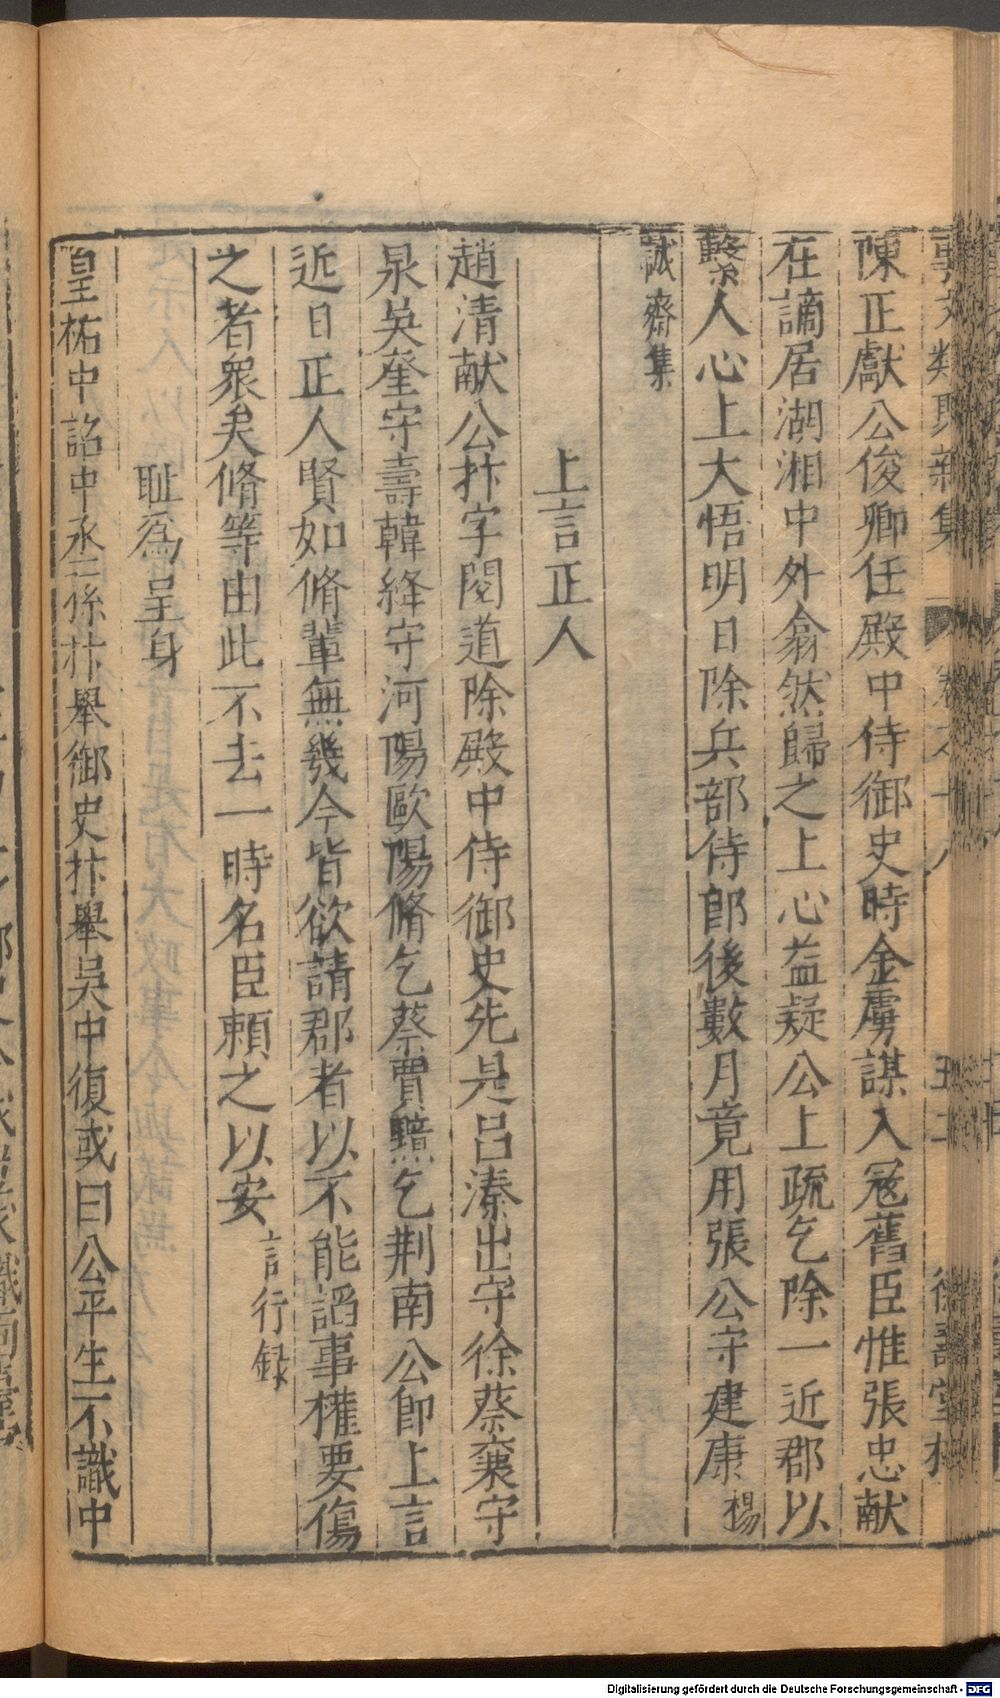 事文類聚新集 卷之十八 五十二 德壽堂梓
陳正獻公俊卿任殿中侍御史時金虜謀入冦舊臣惟張忠献
在謫居湖湘中外翕然歸之上心益疑公上疏乞除一近郡以
繫人心上大悟明日除兵部侍郎後數月竟用張公守建康楊
誠齋集
上言正人
趙清献公抃字閱道除殿中侍御史先是呂溱出守徐蔡襄守
泉吳奎守壽韓絳守河陽歐陽脩乞蔡賈黯乞荆南公即上言
近日正人賢如脩輩無幾今皆欲請郡者以不能謟事權要傷
之者衆矣脩等由此不去一時名臣頼之以安言行録
耻為呈身
皇祐中詔中丞孫抃舉御史抃舉吳中復或曰公平生不識中
Digitalisierung gefördert durch die Deutsche Forschungsgemeinschaft - DFG